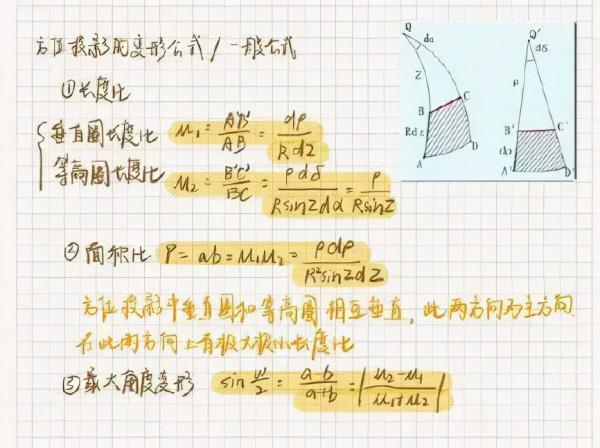 方位投影的变形公式/一般公式
①长度比
垂直圈长度比 μ₁ = A'B'/AB = dρ/RdZ
等高圈长度比 μ₂ = B'C'/BC = ρdδ/RsinZdα = ρ/RsinZ
②面积比 P = ab = μ₁μ₂ = ρdρ/R²sinZdZ
方位投影中垂直圈和等高圈相互垂直,此两方向为主方向
在此两方向上有极大极小长度比
③最大角度变形 sin w/2 = a-b/a+b = |μ₂-μ₁/μ₁+μ₂|
Q
dα
Z
B
C
Rdz
A
D
Q'
dδ
ρ
B'
C'
dρ
A'
D'